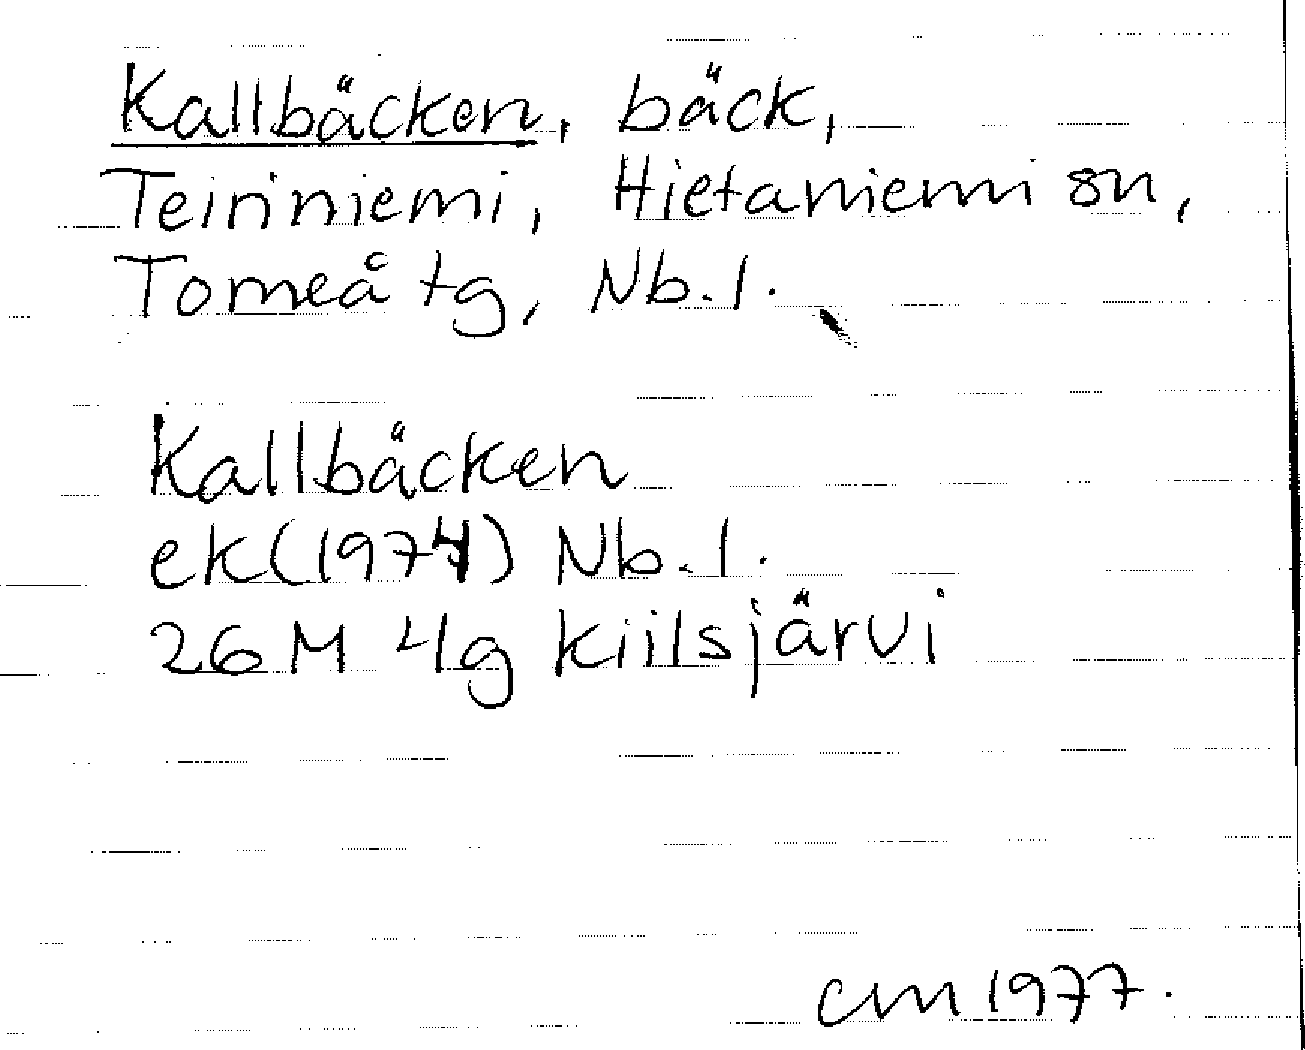 Kallbäcken, bäck,
Teiriniemi, Hietaniemi sn,
Torneå tg, Nb. l.
Kallbäcken
ek (1974) Nb. l.
26 M 4g Kiilsjärvi
cm 1977.